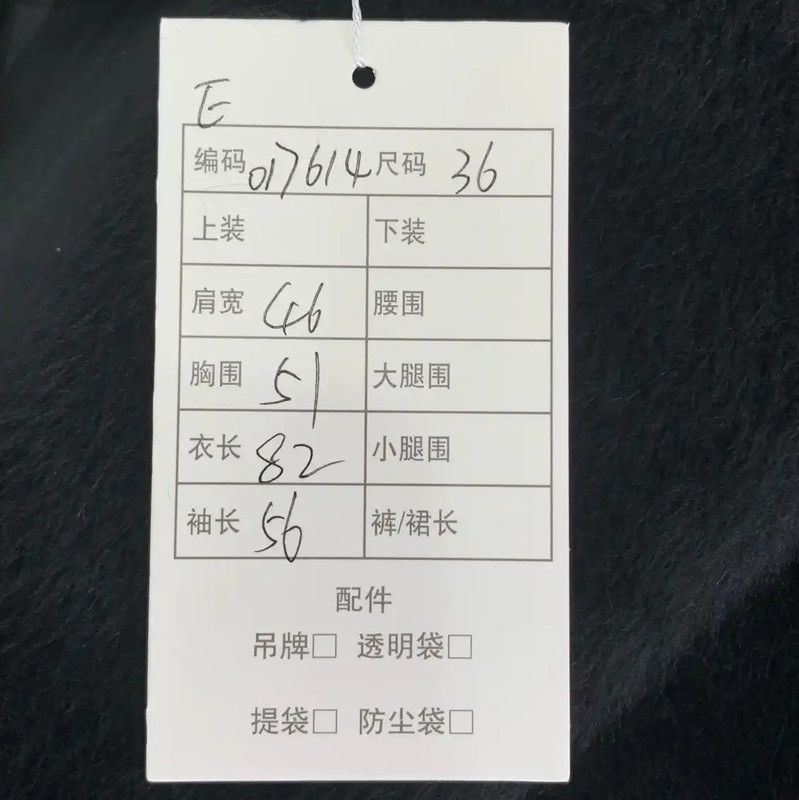 E
编码 017614 尺码 36
上装 下装
肩宽 46 腰围
胸围 51 大腿围
衣长 82 小腿围
袖长 56 裤/裙长
配件
吊牌□ 透明袋□
提袋□ 防尘袋□